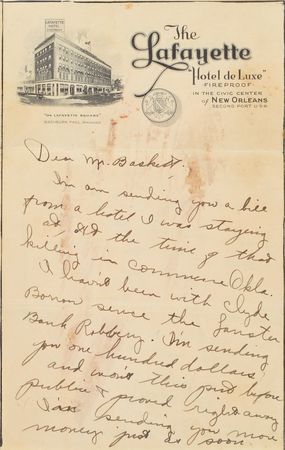 LAFAYETTE
HOTEL
The
Lafayette
"Hotel de Luxe"
FIREPROOF
IN THE CIVIC CENTER
OF NEW ORLEANS
SECOND PORT U.S.A.
"ON LAFAYETTE SQUARE"
Dear Mr. Baskett,
I'm am sending you a bill
from a hotel I was staying
at at the time of that
killing in commerce Okla.
I havn't been with Clyde
Borrow sence the Lanster
Bank Robbery. I'm sending
you one hundred dollars
and wont this put before
public & proved right away
I'am sending you more
money just as soon.